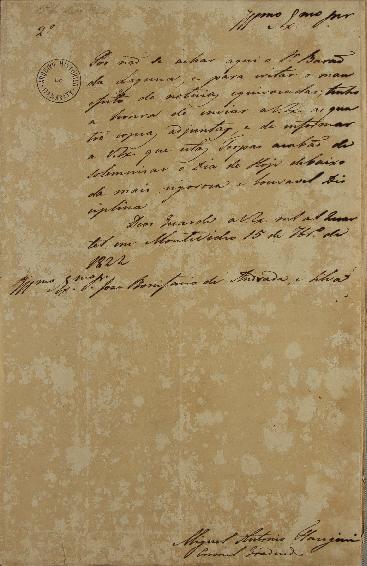 2º
Illmo Exmo Snr
Por não se achar aqui o Sr Barão
da Laguna, e para evitar o mau
efeito de noticias equivocadas, tenho
a honra de enviar a V.Ex. as qua
tro copias adjuntas, e de informar
a V.Ex. que estas Tropas acabão de
solemnisar o Dia de Hoje debaixo
da mais rigorosa e louvavel Dis
ciplina
Deos Guarde a V.Ex.
tel em Montevidéo 15 de 7br.º de
1822
Illmo Exmo Sr. José Bonifacio de Andrada, e Silva
Miguel Antonio Flangini
Coronel